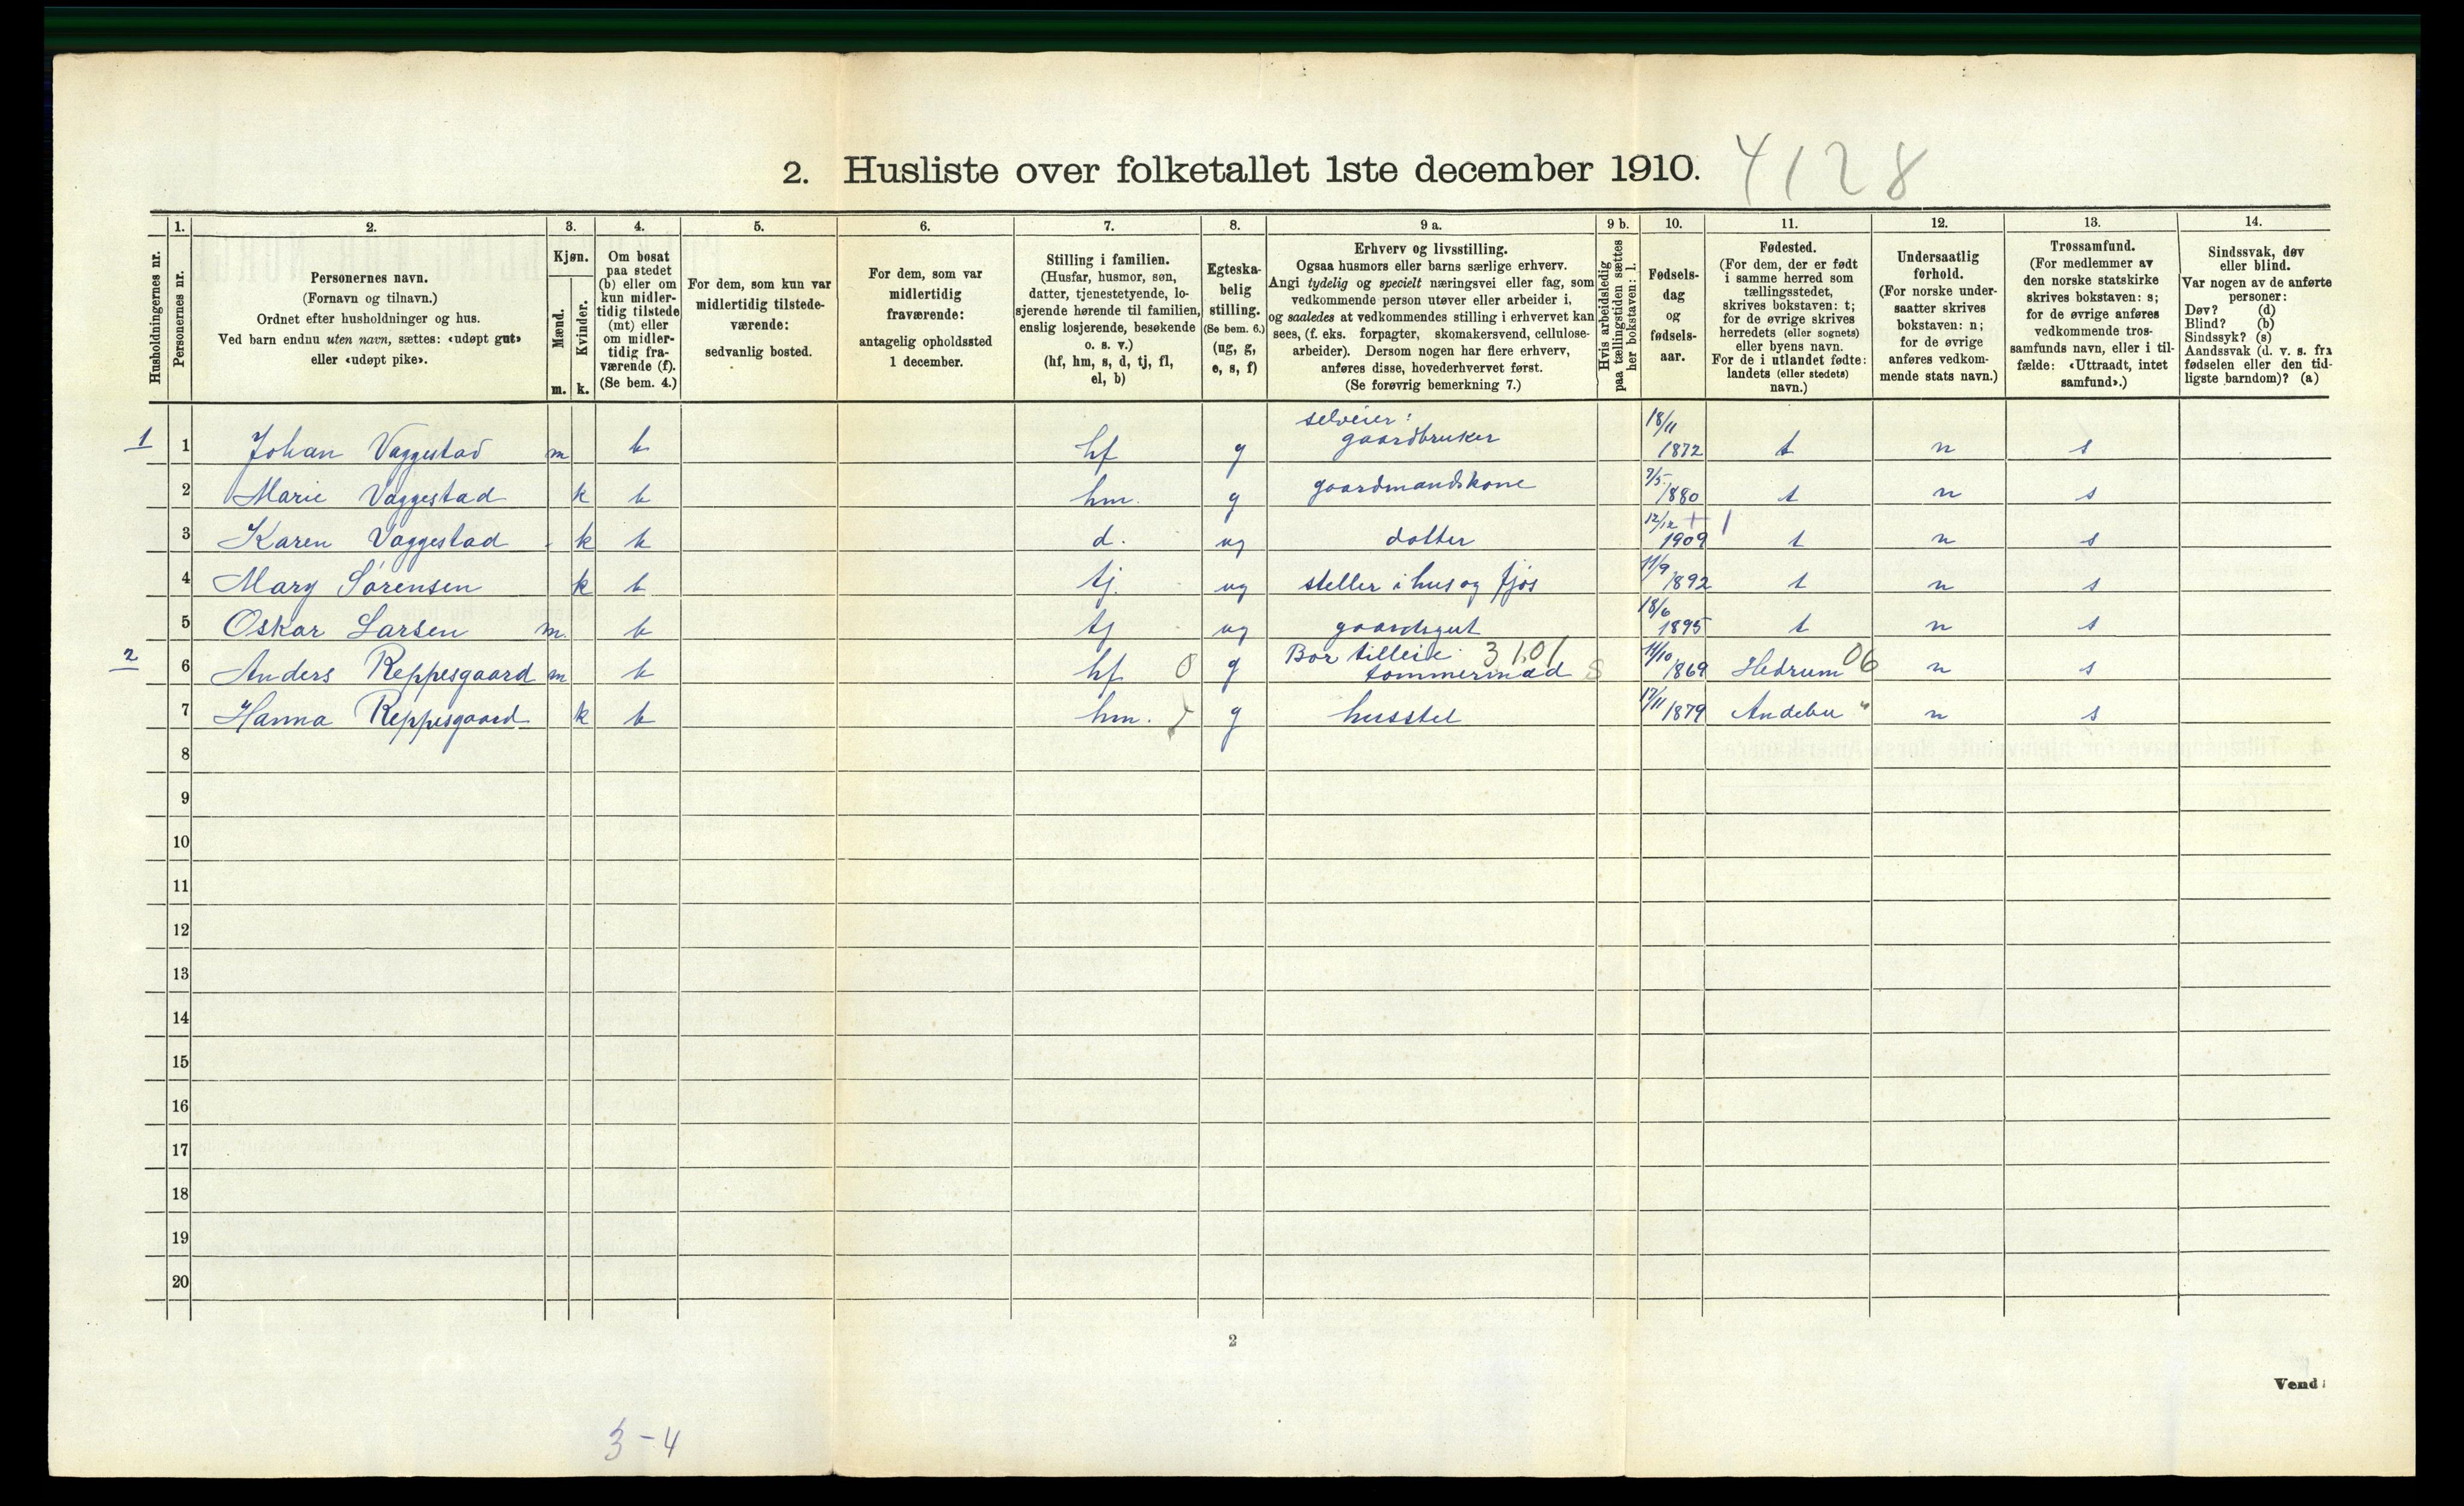 2. Husliste over folketallet 1ste december 1910. 4128
Husholdningernes nr.
1.
Personernes nr.
2.
Personernes navn.
(Fornavn og tilnavn.)
Ordnet efter husholdninger og hus.
Ved barn endnu uten navn, sættes: «udøpt gut»
eller «udøpt pike».
3.
Kjøn.
Mænd.
Kvinder.
m. k.
4.
Om bosat
paa stedet
(b) eller om
kun midler-
tidig tilstede
(mt) eller
om midler-
tidig fra-
værende (f).
(Se bem. 4.)
5.
For dem, som kun var
midlertidig tilstede-
værende:
sedvanlig bosted.
6.
For dem, som var
midlertidig
fraværende:
antagelig opholdssted
1 december.
7.
Stilling i familien.
(Husfar, husmor, søn,
datter, tjenestetyende, lo-
sjerende hørende til familien,
enslig losjerende, besøkende
o. s. v.)
(hf, hm, s, d, tj, fl,
el, b)
8.
Egteska-
belig
stilling.
(Se bem. 6.)
(ug, g,
e, s, f)
9 a.
Erhverv og livsstilling.
Ogsaa husmors eller barns særlige erhverv.
Angi tydelig og specielt næringsvei eller fag, som
vedkommende person utøver eller arbeider i,
og saaledes at vedkommendes stilling i erhvervet kan
sees, (f. eks. forpagter, skomakersvend, cellulose-
arbeider). Dersom nogen har flere erhverv,
anføres disse, hovederhvervet først.
(Se forøvrig bemerkning 7.)
9 b.
Hvis arbeidsledig
paa tællingstiden sættes
her bokstaven: l.
10.
Fødsels-
dag
og
fødsels-
aar.
11.
Fødested.
(For dem, der er født
i samme herred som
tællingsstedet,
skrives bokstaven: t;
for de øvrige skrives
herredets (eller sognets)
eller byens navn.
For de i utlandet fødte:
landets (eller stedets)
navn.)
12.
Undersaatlig
forhold.
(For norske under-
saatter skrives
bokstaven: n;
for de øvrige
anføres vedkom-
mende stats navn.)
13.
Trossamfund.
(For medlemmer av
den norske statskirke
skrives bokstaven: s;
for de øvrige anføres
vedkommende tros-
samfunds navn, eller i til-
fælde: «Uttraadt, intet
samfund».)
14.
Sindssvak, døv
eller blind.
Var nogen av de anførte
personer:
Døv? (d)
Blind? (b)
Sindssyk? (s)
Aandssvak (d. v. s. fra
fødselen eller den tid-
ligste barndom)? (a)
1 1 Johan Vaggestad m b hf g selveier: gaardbruker 18/11 1872 t n s
2 Marie Vaggestad k b hm. g gaardmandskone 7/5 1880 t n s
3 Karen Vaggestad k b d. ug datter 12/12 1909 + 1 t n s
4 Mary Sørensen k b tj. ug steller i hus og fjøs 11/9 1892 t n s
5 Oskar Larsen m. b tj ug gaardsgut 18/6 1895 t n s
2 6 Anders Reppesgaard m b hf 0 g Bor tilleie 3 1.01 tømmermad S 11/10 1869 Hedrum 06 n s
7 Hanna Reppesgaard k b hm. g husstel 17/11 1879 Andebu " n s
8
9
10
11
12
13
14
15
16
17
18
19
20
2
Vend!
3-4